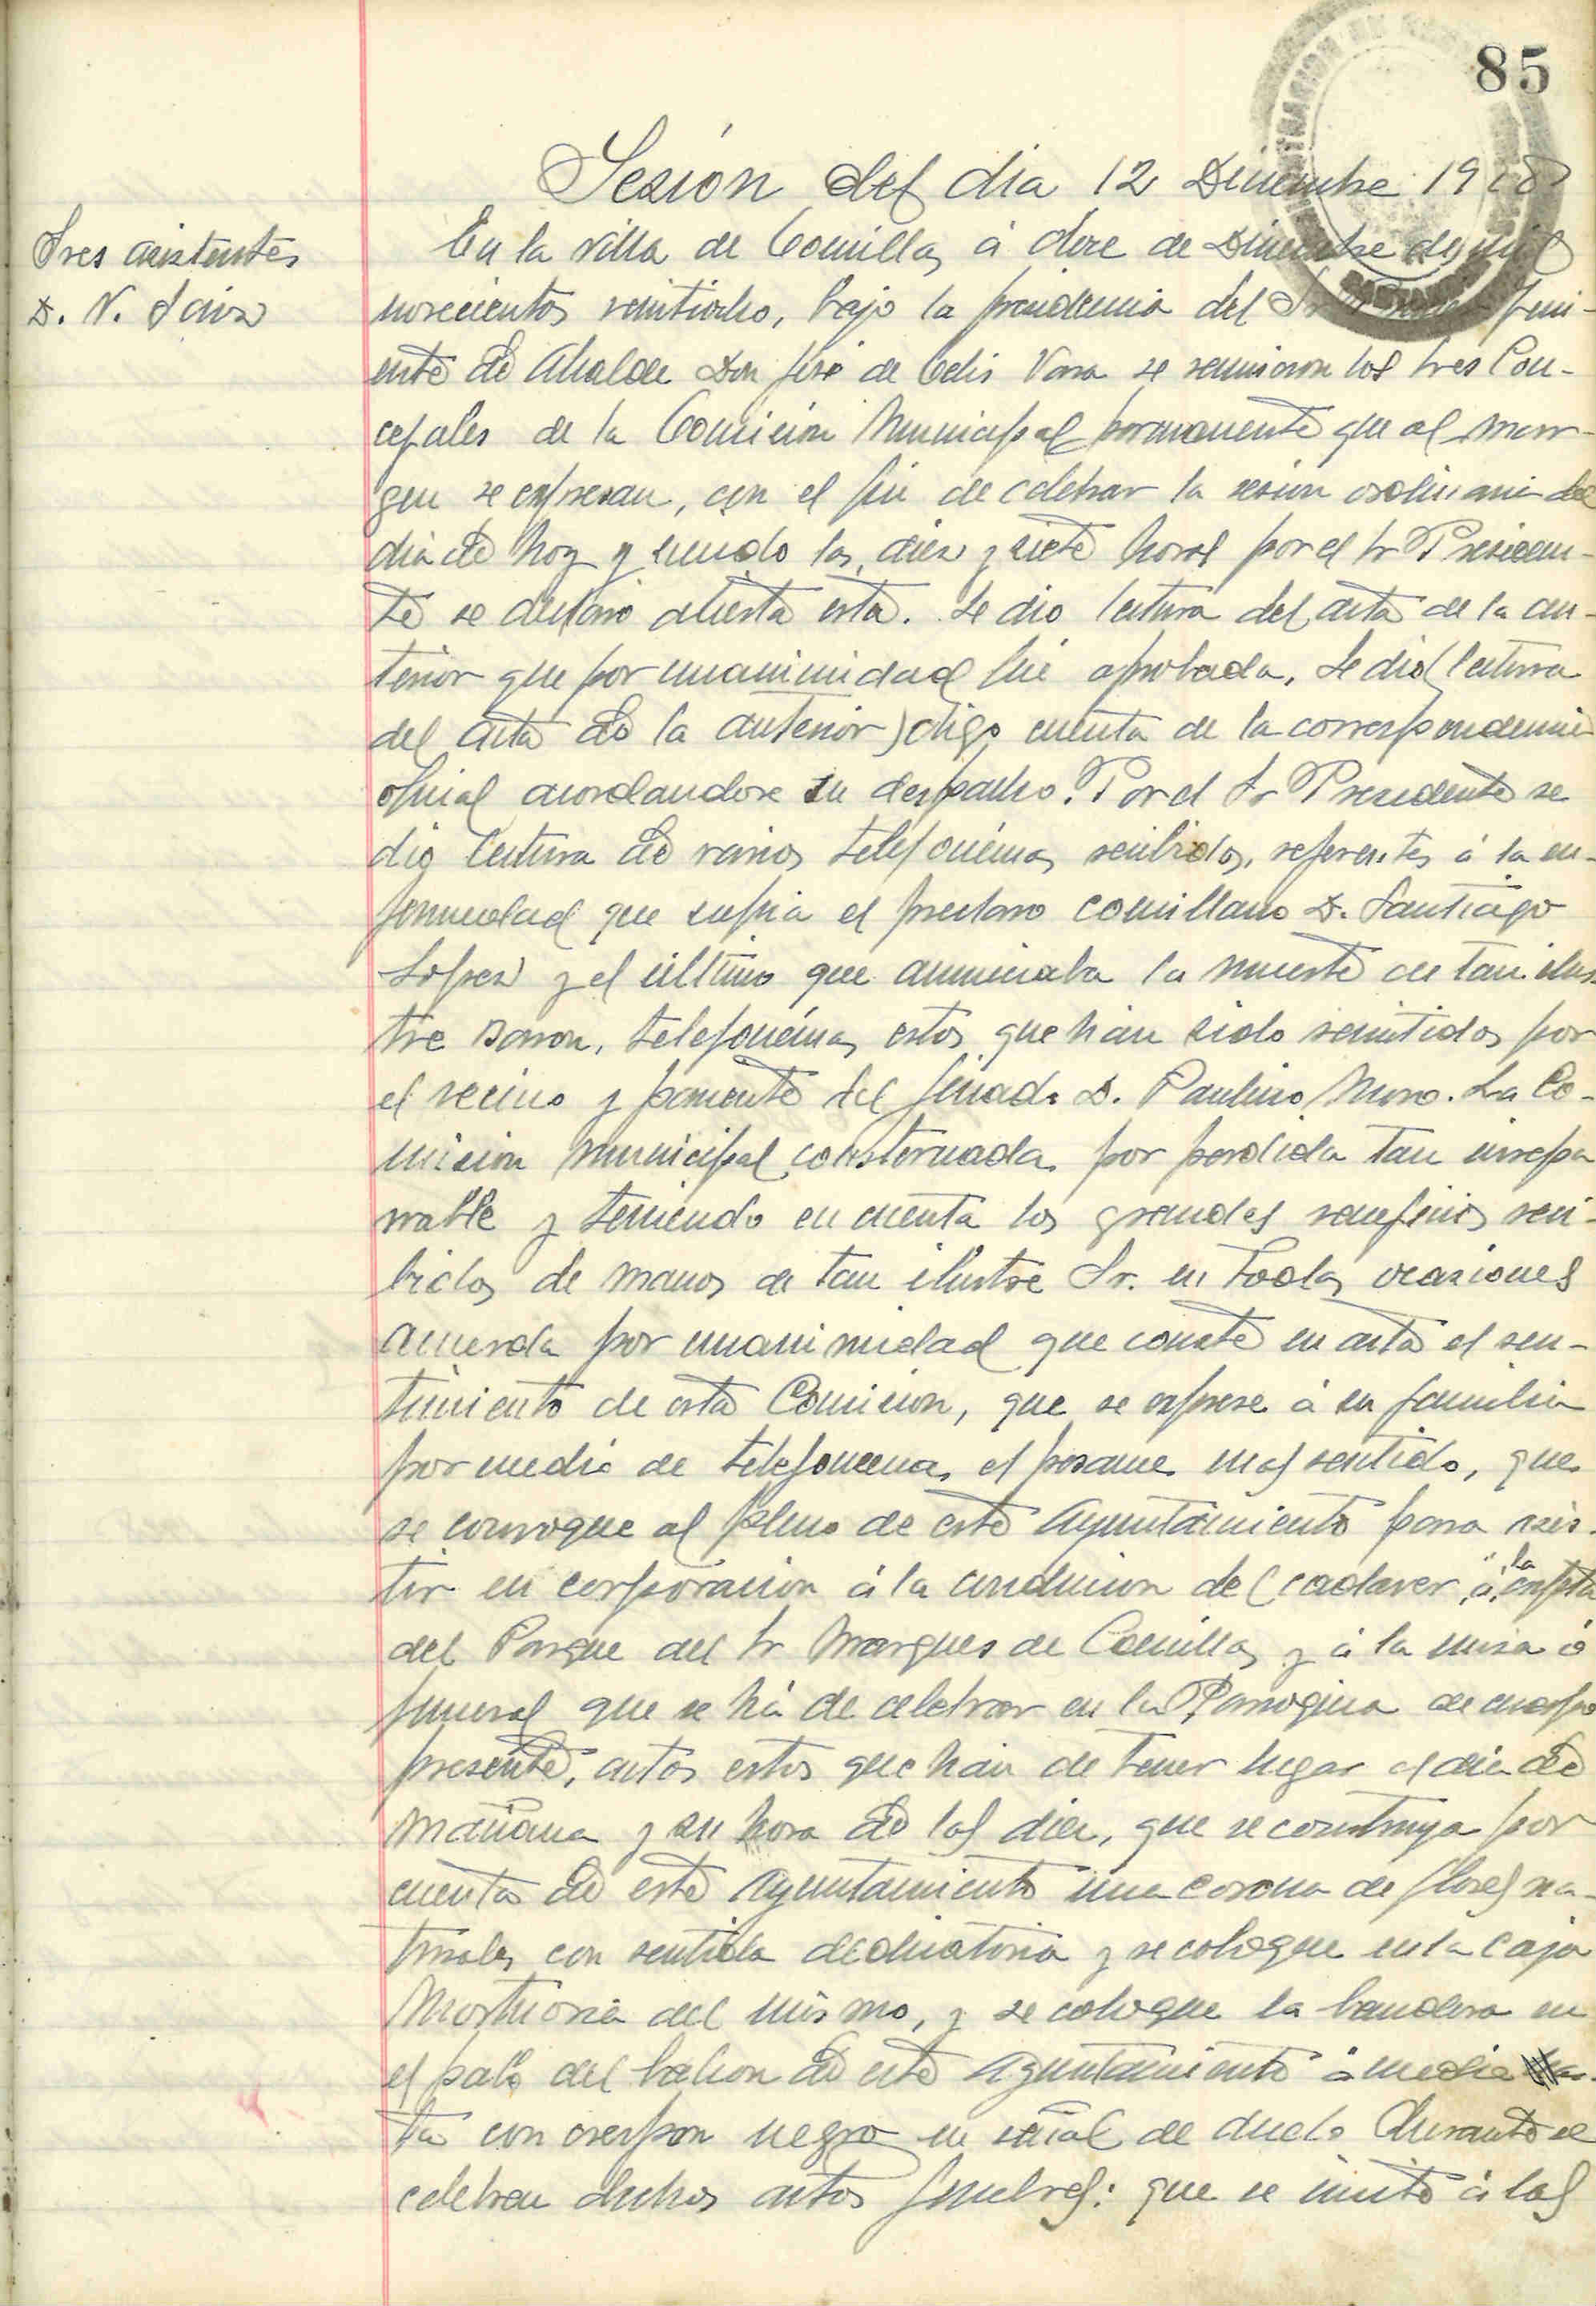 85
Sesión del dia 12 Diciembre 1928
Sres asistentes
D. V. Sainz
En la villa de Comillas á doce de Diciembre de mil
novecientos veintiocho, bajo la presidencia del Sr Teni-
ente de Alcalde Don José de Celis Vara se reunieron los Sres Con-
cejales de la Comisión Municipal permanente que al mar-
gen se expresan, con el fin de celebrar la sesion ordinaria del
dia de hoy y siendo las diez y siete horas por el Sr Presiden-
te se declaro abierta esta. Se dio lectura del acta de la an-
terior que por unanimidad fué aprobada. Se dio (lectura
del acta de la anterior) digo cuenta de la correspondencia
oficial acordandose su despacho. Por el Sr Presidente se
dio lectura de varios telefonémas recibidos, referentes á la en-
fermedad que sufria el preclaro comillano D. Santiago
Lopez y el último que anunciaba la muerte de tan ilus-
tre varon, telefonémas estos que hán sido remitidos por
el vecino y pariente del finado D. Paulino Moro. La Co-
mision Municipal consternada por perdida tan irrepa
rable y teniendo en cuenta los grandes veneficios reci-
bidos de manos de tan ilustre Sr. en todas ocasiones
acuerda por unanimidad que conste en acta el sen-
timiento de esta Comision, que se exprese á su familia
por medio de telefonema, el pesame mas sentido, que
se convoque al pleno de este Ayuntamiento para asis-
tir en corporacion á la conduccion del cadaver, á la capilla
del Parque del Sr Marques de Comillas y á la misa ó
funeral que se há de celebrar en la Parroquia de cuerpo
presente, actos estos que hán de tener lugar el dia de
mañana y su hora de las diez, que se construya por
cuenta de este Ayuntamiento una corona de flores na-
turales con sentida dedicatoria y se coloque en la caja
Mortuoria del mismo, y se coloque la bandera en
el palo del balcon de este Ayuntamiento á media as-
ta con crespon negro en señal de duelo durante se
celebran dichos actos funebres: que se invite á las